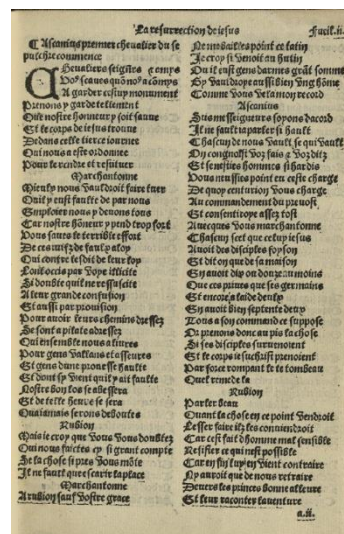 La resurrection de iesus
Fueil.ii.
¶ Ascanius premier cheualier du se
pulchre commence
CHeualiers seignrs & amys
Vos scaues q̃ uõ9 auõs a cõmys
A garder cestuy monument
Prenons y garde tellement
Que nostre honneur y soit sauue
Et le corps de iesus trouue
Dedans ceste tierce iournee
Qui nous a este ordonnee
Pour le rendre et restituer
Marchantonne
Mieulx nous vauldroit faire tuer
Quil y eust faulte de par nous
Employer nous y deuons tous
Car nostre hõneur y pend trop fort
Vous saues le terrible effort
De ces iuifz de faulx aloy
Qui contre le dit de leur loy
Lont occis par voye illicite
Et doubte quil ne ressuscite
A leur grande confusion
Et aussi par prouision
Pour auoir leurs chemins dressez
Se sont a pilate adressez
Qui ensemble nous a liures
Pour gens vaillans et asseures
Et gens dune prouesse haulte
Et dont sy vient quil y ait faulte
Nostre bon los se abessera
Et de telle heure se sera
Qua iamais serons deboutes
Rubion
Mais ie croy que vous vous doubtez
Qui nous faictes cy si grant compte
De la chose si pres vous mõte
Il ne fault que escarir la place
Marchantonne
A rubion sauf vostre grace
Ne me bailles point ce latin
Je croy si venoit au hutin
Ou il eust gens darmes grãt somme
Ry vauldroye aussi bien vng hõme
Comme vous vela mon record
Ascanius
Sus messeigneurs soyons dacord
Il ne fault ia parler si hault
Chascun de nous vault se qui vault
On congnoist voz fais & voz ditz
Et se neussies hommes si hardis
Vous neussies point eu ceste charge
De quoy centurion vous charge
Au commandement du preuost
Et consentirope assez tost
Auecques vous marchantonne
Chascun scet que cestuy iesus
Auoit des disciples foyson
Et dit on que de sa maison
En auoit dix ou douze au moins
Que ces princes que ses germains
Et encore a laide deulx
En auoit bien septente deux
Tous a son command ce suppose
Or prenons donc au pis la chose
Si ses disciples suruenoient
Et le corps iesuchrist prenoient
Par force rompant le tombeau
Quel remede la
Rubion
Parler beau
Quant la chose en ce point vendroit
Lesser faire il les conuiendroit
Car cest fait dhomme mal sensible
Resister ce qui nest possible
Car en fin luy en vient contraire
Ny auroit que de nous retraire
Deuers les princes bonne alleure
Et leur raconter lauenture
a.ii.